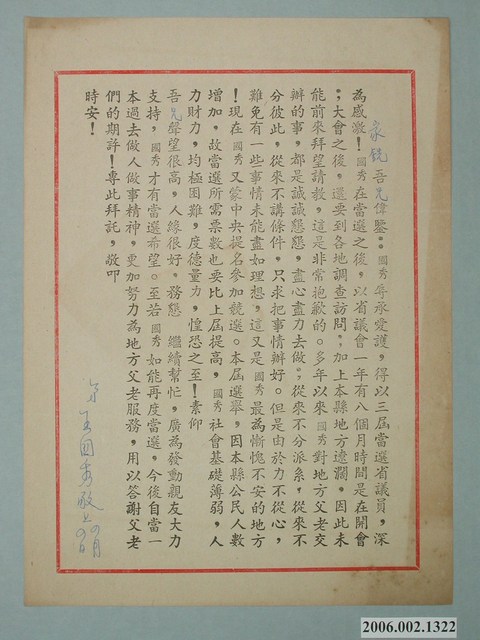 家銳吾兄偉鑒：國秀承愛護，得以三屆當選省議員，深
為感激！國秀在當選之後，以省議會一年有八個月時間是在開會
；大會之後，還要到各地調查訪問；加上本縣地方遼濶，因此未
能前來拜望請教，這是非常抱歉的。多年以來國秀對地方父老交
辦的事，都是誠誠懇懇，盡心盡力去做。；從來不分派系，從來不
分彼此，從來不講條件，只求把事情辦好。但是由於力不從心，
難免有一些事情未能盡如理想，這又是國秀最為慚愧不安的地方
！現在國秀又蒙中央提名參加競選。本屆選舉，因本縣公民人數
增加，故當選所需票數也要比上屆提高，國秀社會基礎薄弱，人
力財力，均極困難，度德量力，惶恐之至！素仰
吾兄聲望很高，人緣很好，務懇 繼續幫忙，廣為發動親友大力
支持，國秀才有當選希望。至若國秀如能再度當選，今後自當一
本過去做人做事精神，更加努力為地方父老服務，用以答謝父老
們的期許！專此拜託，敬叩
時安！
弟 王國秀敬上
月 日
2006.002.1322